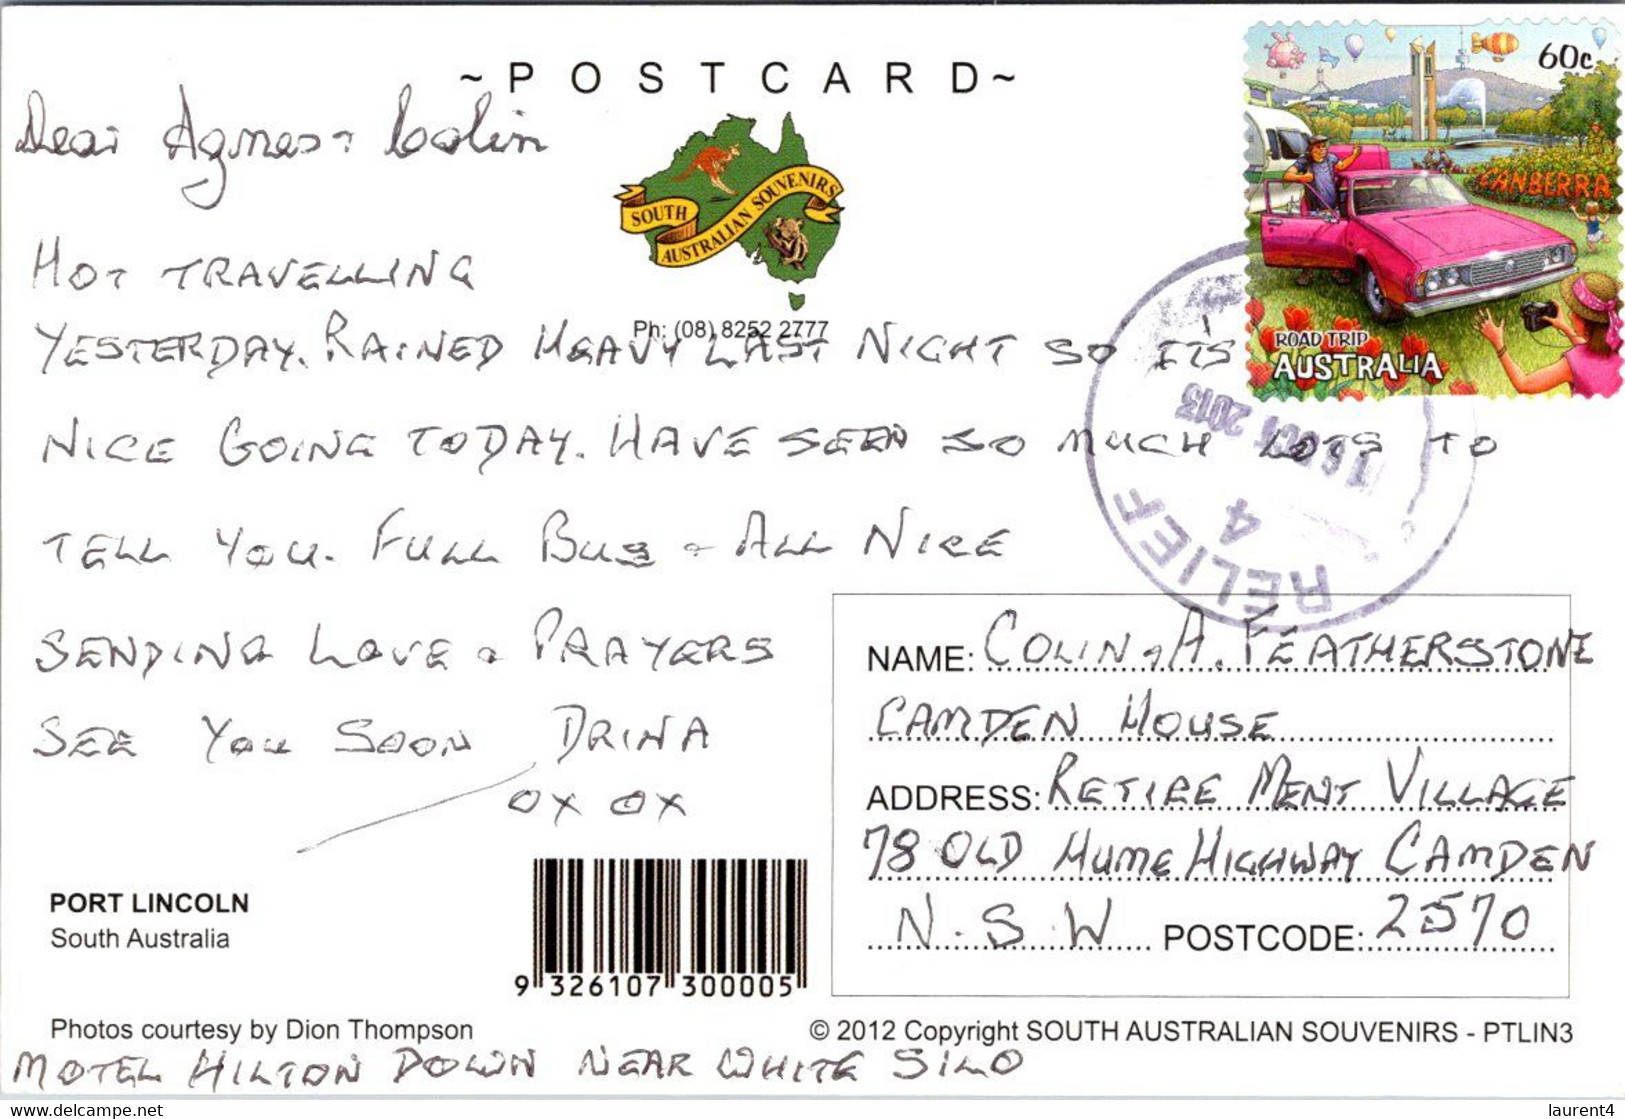 ~ P O S T C A R D ~
60c
Dear Agnes + Colin
CANBERRA
SOUTH
AUSTRALIAN SOUVENIRS
HOT TRAVELLING
Ph: (08) 8252 2777
YESTERDAY. RAINED HEAVY LAST NIGHT SO IT'S
ROAD TRIP
AUSTRALIA
16 OCT 2013
NICE GOING TODAY. HAVE SEEN SO MUCH LOTS TO
4
RELIEF
TELL YOU. FULL BUS + ALL NICE
SENDING LOVE + PRAYERS
SEE YOU SOON DRINA
OX OX
NAME: COLIN + A. FEATHERSTONE
CAMDEN HOUSE
ADDRESS: RETIREMENT VILLAGE
78 OLD HUME HIGHWAY CAMDEN
N.S.W POSTCODE: 2570
PORT LINCOLN
South Australia
9 326107 300005
Photos courtesy by Dion Thompson
© 2012 Copyright SOUTH AUSTRALIAN SOUVENIRS - PTLIN3
MOTEL HILTON DOWN NEAR WHITE SILO
www.delcampe.net
laurent4